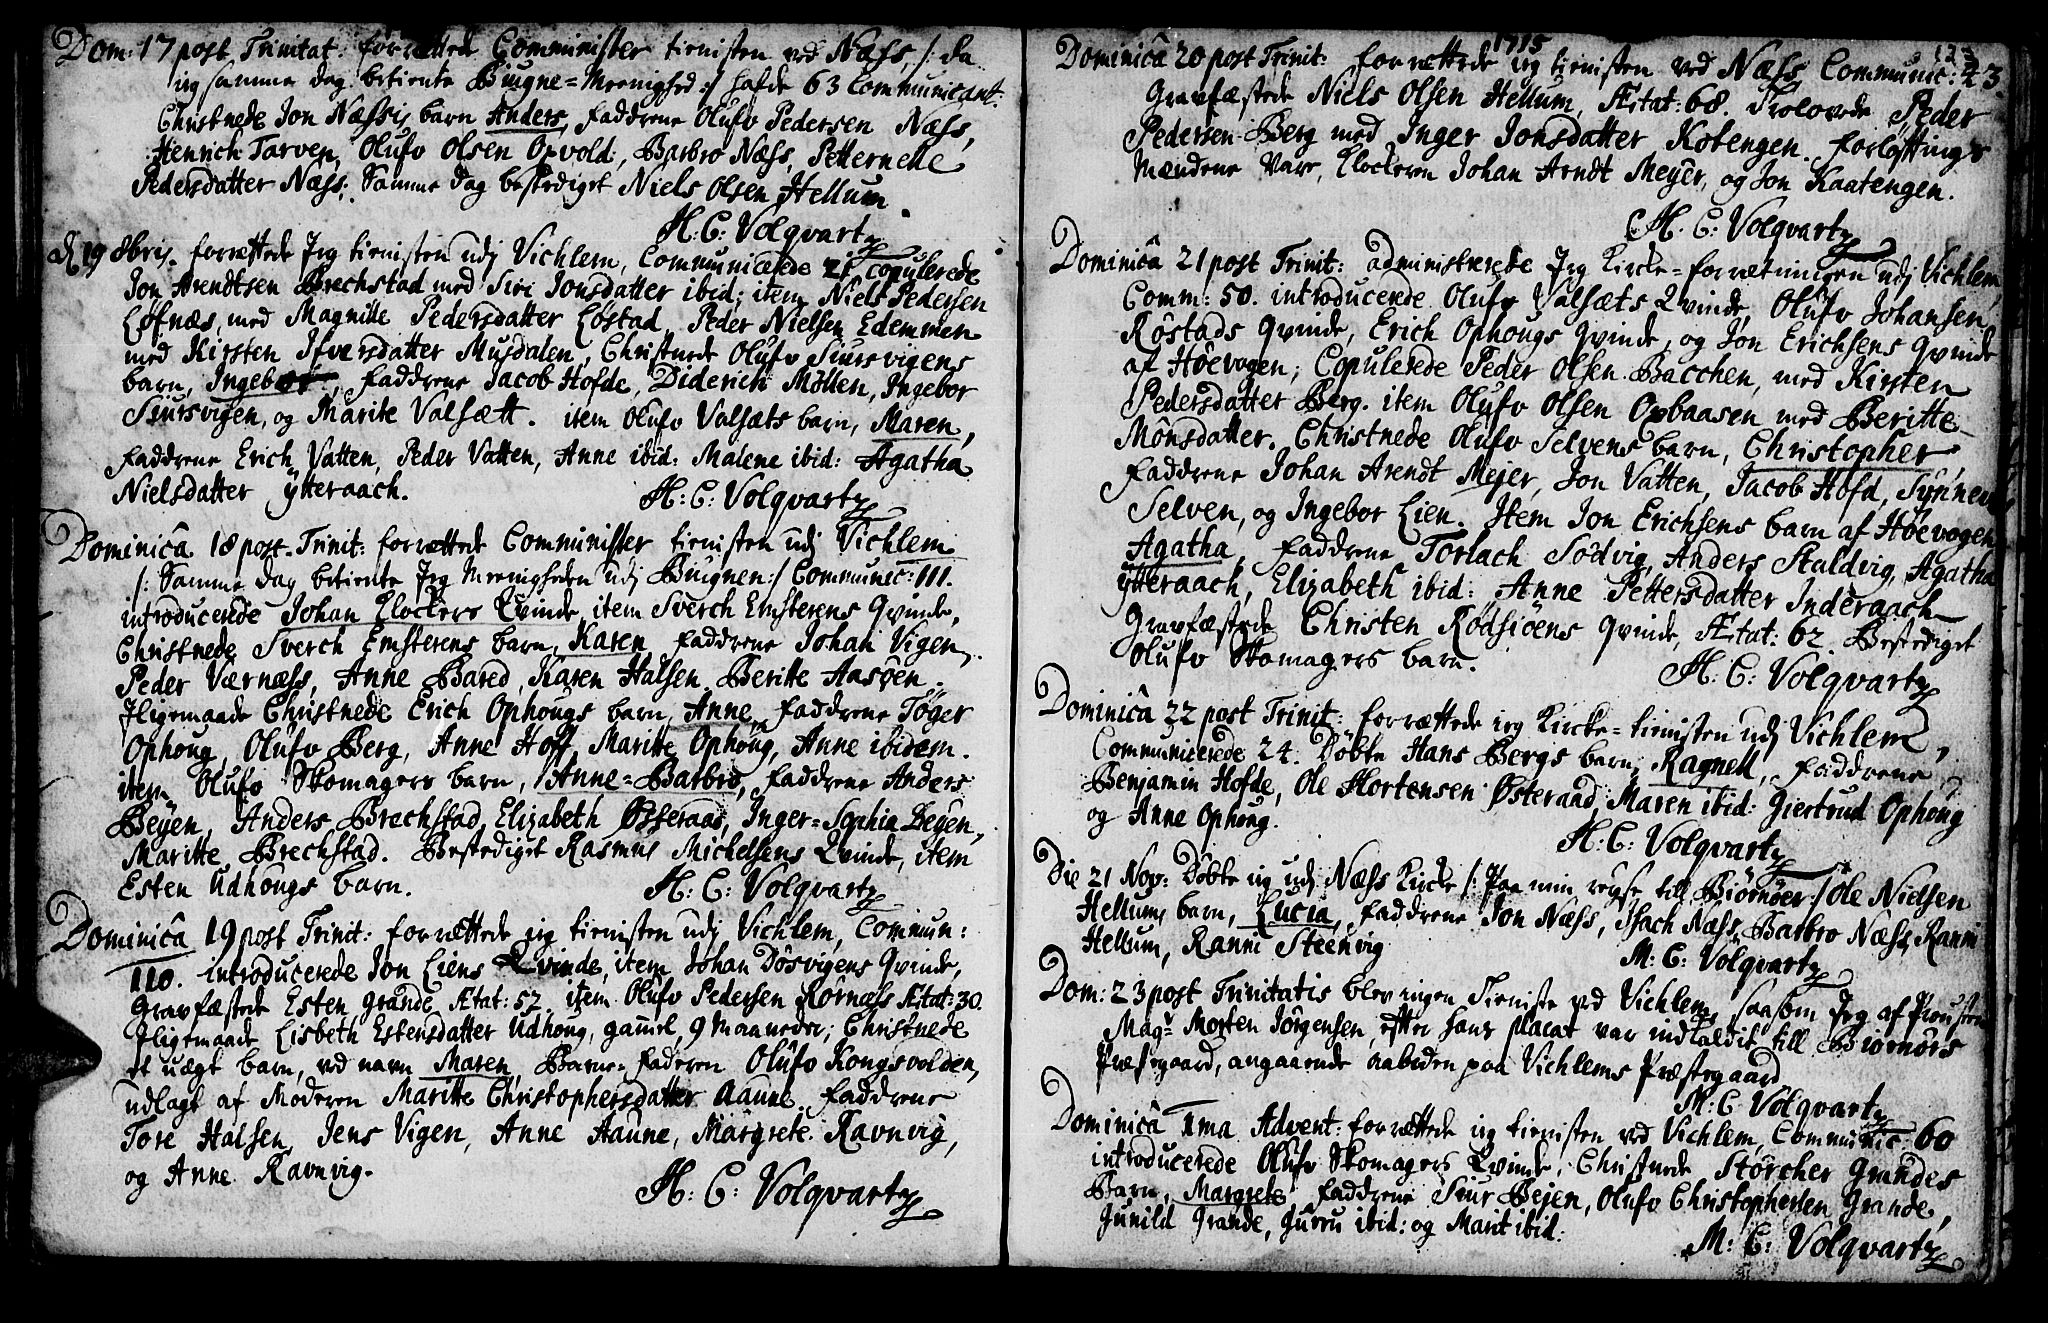 Dom: 17 post Trinitat: forrættede Comminister tienisten ved Næss, /: da
ieg samme dag betiente Biugne=Meenighed :/ hafde 63 Communicant.
Christnede Jon Næssis barn Anders, faddrene Olufv Pedersen Næss,
Henrich Tarven, Olufv Olsen Opvold:, Barbro Næss, Petternelle
Pedersdatter Næss: Samme dag bestediget Niels Olsen Hellum.
H: C: Volqvartz
d 19 8bris. forrættede Jeg tienisten udj Vichlem, Communicerede 21 copulerede
Jon Arendtsen Brechstad med Siri Jonsdatter ibid: item Niels Pedersen
Løfnæs, med Magnille Pedersdatter Løstad, Peder Nielsen Edemmen
med Kirsten Ifversdatter Musdalen, Christnede Olufv Siursvigens
barn, Ingebor, faddrene Jacob Hofde, Diderich Møllen, Ingebor
Siursvigen, og Marite Valsætt. item Olufv Valsæts barn, Maren,
faddrene Erich Vatten, Peder Vatten, Anne ibid: Malene ibid: Agatha
Nielsdatter ÿtteraach.
H: C: Volqvartz
Dominica 18 post Trinit: forrættede Comminister tienisten udj Vichlem
/: Samme dag betiente Jeg Meenigheden udj Bugnen :/ Communic: 111.
introducerede Johan Klockers Qvinde, item Sverch Emsterens Qvinde,
Christnede Sverch Emsterens barn, Karen, faddrene Johan Vigen,
Peder Værnæss, Anne Bared, Karen Halsen, Beritte Aasøen.
Jligemaade Christnede Erich Ophougs barn, Anne, faddrene Tøger
Ophoug, Olufv Berg, Anne Hoff, Maritte Ophoug, Anne ibidem.
item Olufv Skomagers barn, Anne=Barbro, faddrene Anders
Beyen, Anders Brechstad, Elizabeth Østeraas, Inger=Sophia Beyen,
Maritte Brechstad. Bestediget Rasmus Michelsens Qvinde, item
Esten Udhougs barn.
H: C: Volqvartz
Dominica 19 post Trinit: forrættede jeg tienisten udj Vichlem, Commun:
110. introducerede Jon Liens Qvinde, item Johan Døsvigens Qvinde,
Gravfæstede Esten Grande Ætat: 52 item Olufv Pedersen Rørnæss Ætat: 30.
Jligemaade Lisbeth Estensdatter Udhoug, gamel, 9 Maaneder; Christnede
et uægt barn, ved navn Maren, Barne=faderen Olufv Kongsvolden,
udlagt af Moderen Maritte Christophersdatter Aaune. faddrene
Tore Halsen, Jens Vigen, Anne Aaune, Margrete Ravnvig,
og Anne Ravnvig.
H: C: Volqvartz
1715
Dominica 20 post Trinit: forrættede jeg tienisten ved Næss Communic: 43
Gravfæstede Niels Olsen Hellum, Ætat: 68. Trolovede Peder
Pedersen Berg med Inger Jonsdatter Kotengen. forløftings
Mændene vare, Klockeren Johan Arndt Meyer, og Jon Kaatengen.
H. C: Volqvartz
Dominica 21 post Trinit: administrerede Jeg Kircke=forrætningen udj Vichlem,
Comm: 50. introducerede Olufv Valsæts Qvinde, Olufv Johansen
Røstads Qvinde, Erich Ophougs Qvinde, og Jon Erichsens Qvinde
af Høevagen; Copulerede Peder Olsen Bacchen, med Kirsten
Pedersdatter Berg. item Olufv Olsen Opbaasen med Beritte
Mønsdatter. Christnede Olufv Selvens barn, Christopher
faddrene Johan Arendt Mejer, Jon Vatten, Jacob Hofd, Synneve
Selven, og Ingebor Lien. Item Jon Erichsens barn af Høevagen
Agatha, faddrene Torlach Sødvig, Anders Staldvig, Agatha
ÿtteraach, Elizabeth ibid: Anne Pettersdatter Inderaach
Gravfæstede Christen Rødsjøens Qvinde, Ætat: 62. Bestediget
Olufv Skomagers barn.
H: C: Volqvartz
Dominica 22 post Trinit: forrættede jeg Kircke=tienisten udj Vichlem,
Communicerede 24. Døbte Hans Bergs barn, Ragnell, faddrene
Benjamin Hofde, Ole Mortensen Østeraad, Maren ibid: Giertrud Ophoug
og Anne Ophoug.
H: C: Volqvartz
Die 21 Nov: Døbte jeg udj Næss Kircke /: Paa min reyse till Biørnøer :/ Ole Nielsen
Hellums barn, Lucia, faddrene Jon Næss, Isach Næss, Barbro Næss, Ranni
Hellum, Ranni Steenvig
M: C: Volqvartz
Dom: 23 post Trinitatis blev ingen Tieniste ved Vichlem, saasom Jeg af Prousten
Magr Morten Jørgensen, efter hans placat var indkaldet till Biørnørs
Præstegaard, angaaende aaboden paa Vichlems Præstegaard
M: C Volqvartz
Dominica 1ma Advent: forrættede jeg tienisten ved Vichlem, Communic: 60
introducerede Olufv Skomagers Qvinde, Christnede Størcher Grandes
Barn, Margrete faddrene Siur Bejen, Olufv Christophersen Grande,
Gunild Grande, Gurru ibid: og Marit ibid:
M: C: Volqvartz